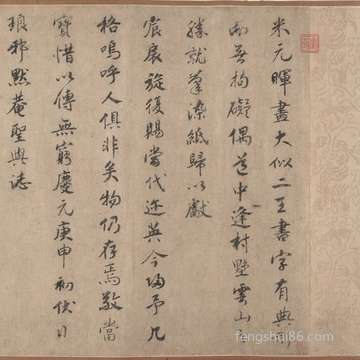 米元暉畫大似二王書字有典
而無拘礙偶道中逢村墅雲山
勝就筆染紙歸以獻
宸扆旋復賜當代近英今歸予几
格嗚呼人俱非矣物仍存焉敬當
寶惜以傳無窮慶元庚申初伏日
琅邪默菴聖與志
fengshui86.com